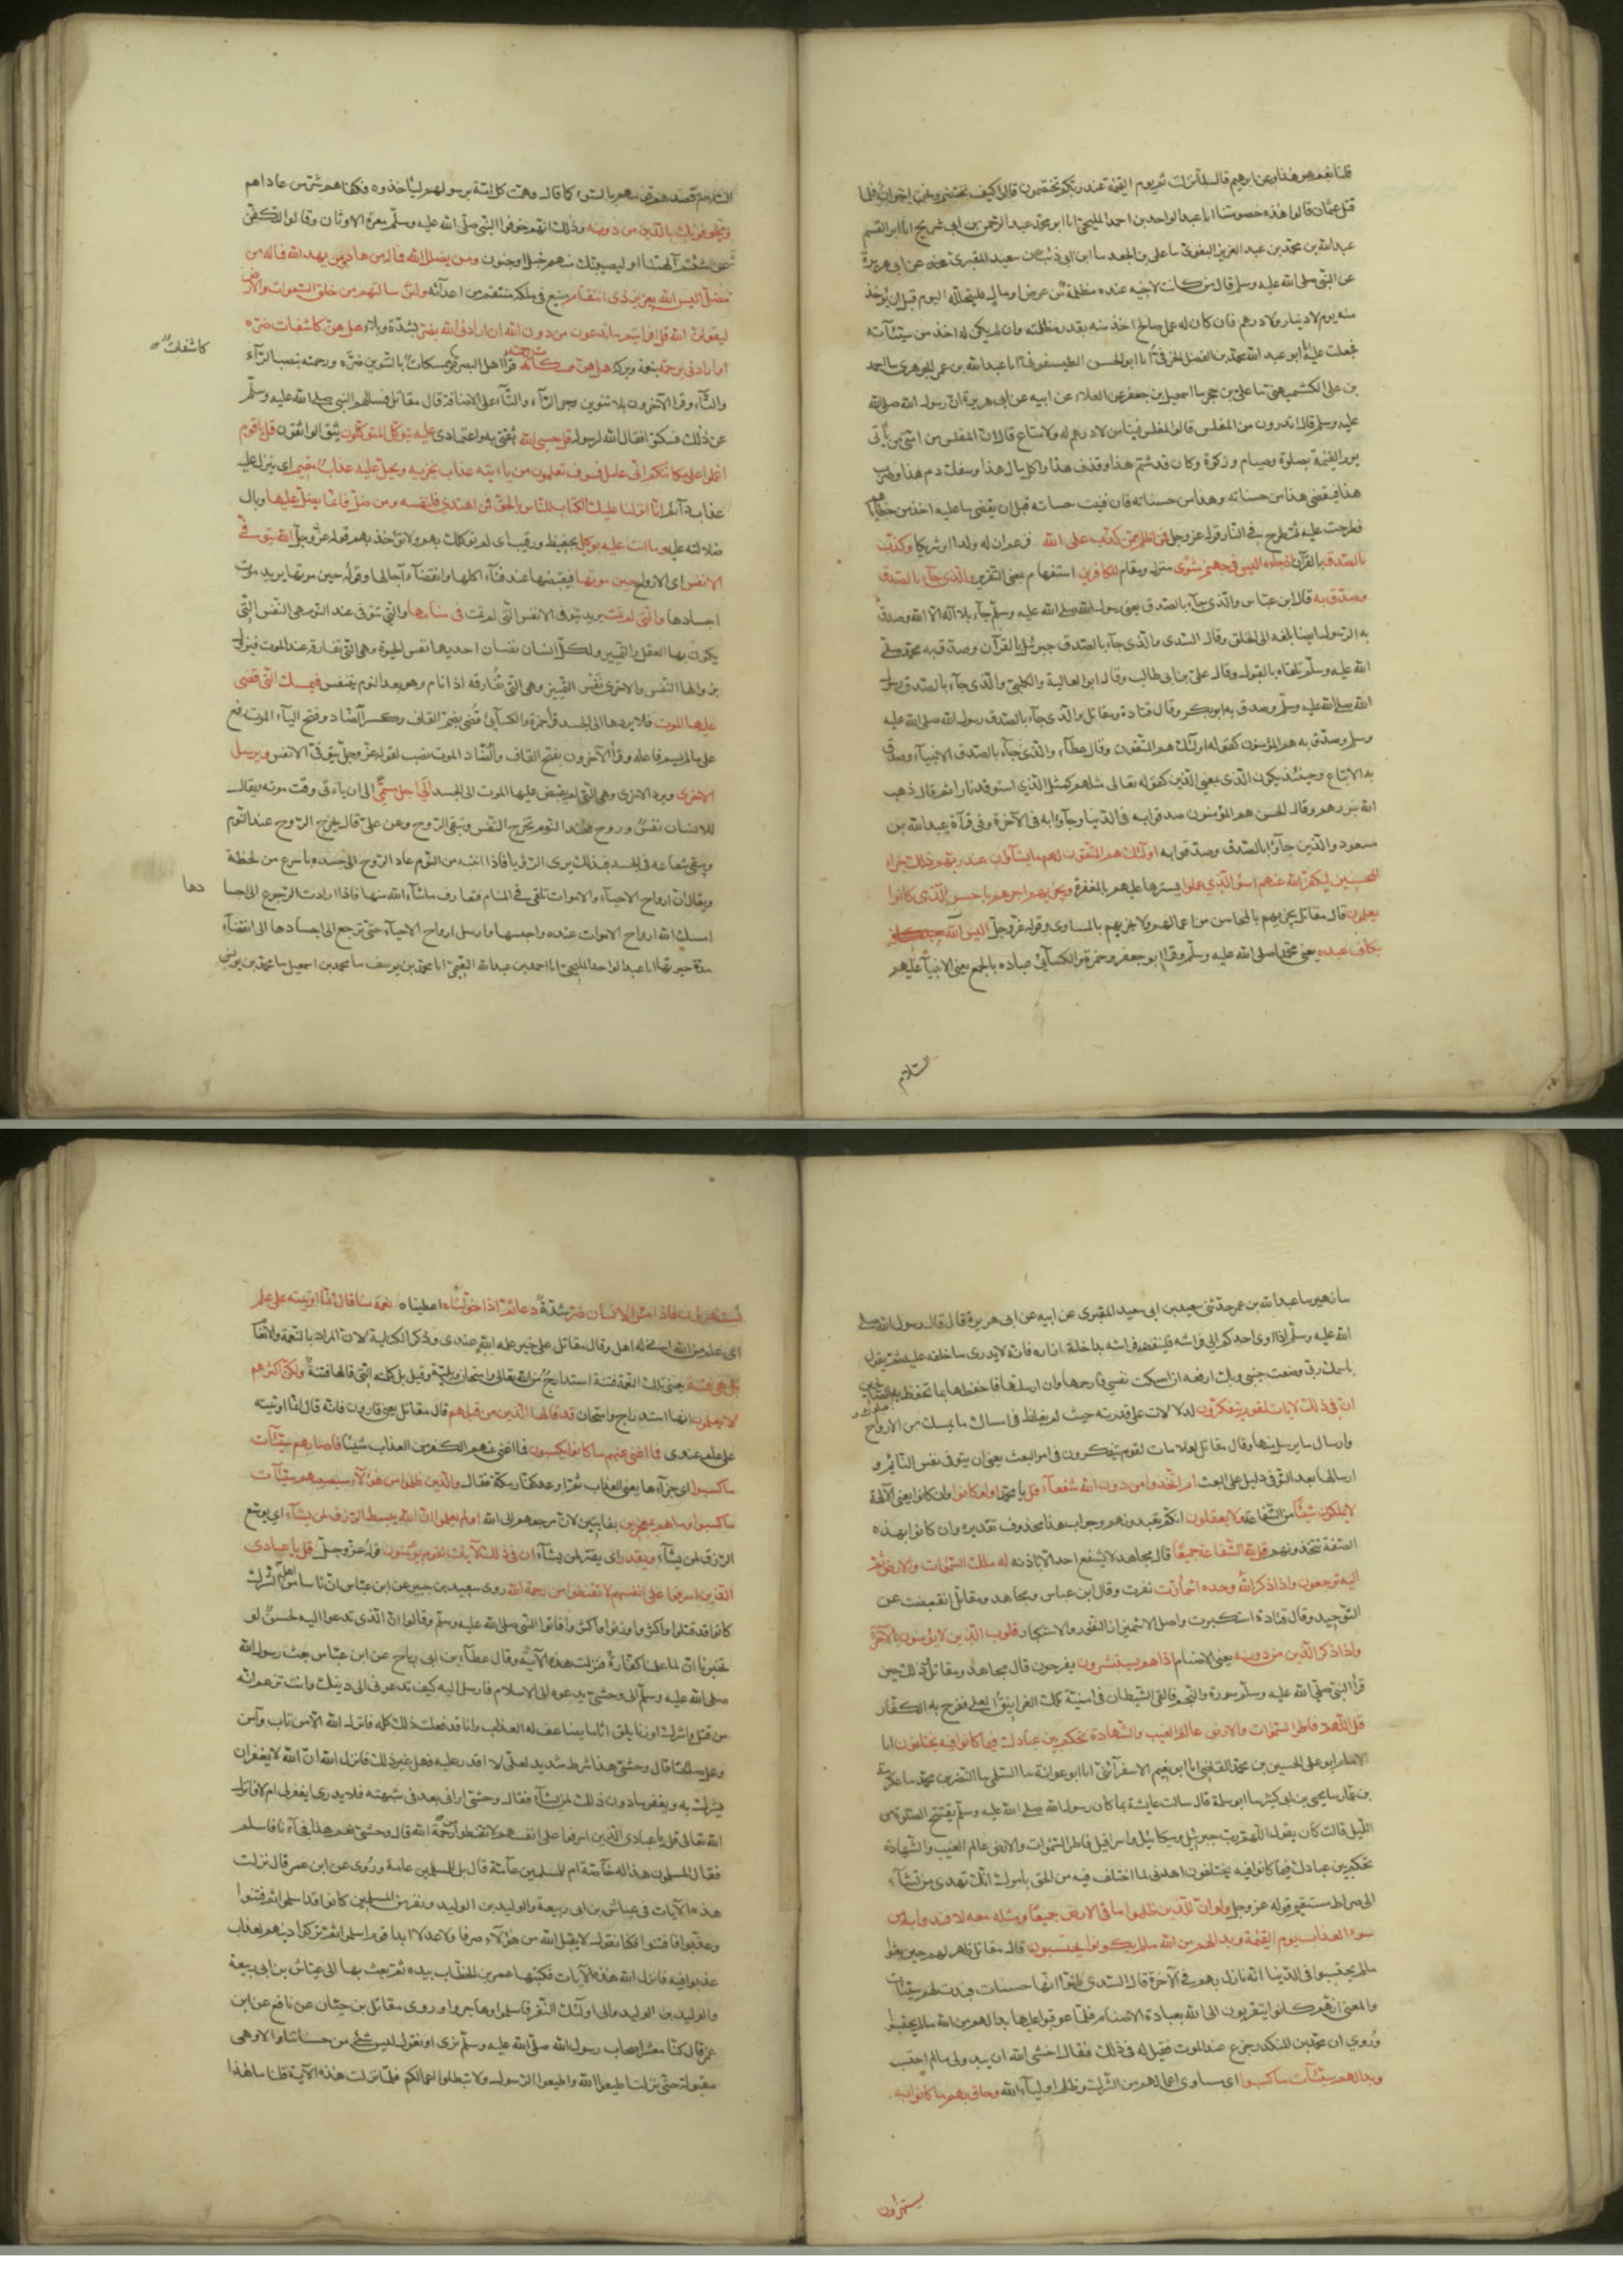 قلنا نعم هو هذا وعن ابرهيم قال لما نزلت ثم يوم القيمة عند ربكم تختصمون قالوا كيف نختصم ونحن اخوان فلما
قتل عثمان قالوا هذه خصومتنا انا عبد الواحد بن احمد المليحي انا ابو محمد عبد الرحمن بن ابي شريح انا ابو القسم
عبد الله بن محمد بن عبد العزيز البغوي سا علي بن الجعد سا ابن ابي ذئب عن سعيد المقبري عن ابي هريرة
عن النبي صلى الله عليه وسلم قال من كانت لاخيه عنده مظلمة من عرض او مال فليتحلله اليوم قبل ان يؤخذ
منه يوم لا دينار ولا درهم فان كان له عمل صالح اخذ منه بقدر مظلمته وان لم يكن له اخذ من سيئآته
فجعلت عليه انا ابو عبد الله محمد بن الفضل الخرقي انا ابو الحسن الطيسفوني انا عبد الله بن عمر الجوهري سا احمد
بن علي الكشميهني سا علي بن حجر سا اسمعيل بن جعفر عن العلاء عن ابيه عن ابي هريرة ان رسول الله صلى الله
عليه وسلم قال اتدرون من المفلس قالوا المفلس فينا من لا درهم له ولا متاع قال ان المفلس من امتي من يأتي
يوم القيمة بصلوة وصيام وزكوة وكان قد شتم هذا وقذف هذا واكل مال هذا وسفك دم هذا وضرب
هذا فيقضى هذا من حسناته وهذا من حسناته فان فنيت حسناته قبل ان يقضى ما عليه اخذ من خطاياهم
فطرحت عليه ثم طرح في النار قوله عز وجل فمن اظلم ممن كذب على الله فزعم ان له ولدا او شريكا وكذب
بالصدق بالقرآن اذ جاءه اليس في جهنم مثوى منزل ومقام للكافرين استفهام بمعنى التقرير والذي جآء بالصدق
وصدق به قال ابن عباس والذي جآء بالصدق يعني رسول الله صلى الله عليه وسلم جآء بلا اله الا الله وصدق
به الرسول ايضا بلغه الى الخلق وقال السدي والذي جآء بالصدق جبرئيل بالقرآن وصدق به محمد صلى
الله عليه وسلم تلقاه بالقبول وقال علي بن ابي طالب وقال ابو العالية والكلبي والذي جآء بالصدق رسول
الله صلى الله عليه وسلم وصدق به ابو بكر وقال قتادة ومقاتل والذي جآء بالصدق رسول الله صلى الله عليه
وسلم وصدق به هم المؤمنون كقوله اولئك هم المتقون وقال عطآء والذي جآء بالصدق الانبيآء وصدق
به الاتباع وحينئذ يكون الذي بمعنى الذين كقوله تعالى مثلهم كمثل الذي استوقد نارا ثم قال ذهب
الله بنورهم وقال الحسن هم المؤمنون صدقوا به في الدنيا وجآؤا به في الآخرة وفي قرآة عبد الله بن
مسعود والذين جآؤا بالصدق وصدقوا به اولئك هم المتقون لهم ما يشآؤن عند ربهم ذلك جزاء
المحسنين ليكفر الله عنهم اسوأ الذي عملوا يسترها عليهم بالمغفرة ويجزيهم اجرهم باحسن الذي كانوا
يعملون قال مقاتل يجزيهم بالمحاسن من اعمالهم ولا يجزيهم بالمساوى وقوله عز وجل اليس الله
بكاف عبده يعني محمدا صلى الله عليه وسلم وقرأ ابو جعفر وحمزة والكسآئي عباده بالجمع يعني الانبيآء عليهم
السلام
السلام قصدهم قومهم بالسوء كما قال وهمت كل امة برسولهم ليأخذوه فكفاهم شر من عاداهم
ويخوفونك بالذين من دونه وذلك انهم خوفوا النبي صلى الله عليه وسلم معرة الاوثان وقالوا لتكفن
عن شتم آلهتنا او ليصيبنك منهم خبل او جنون ومن يضلل الله فما له من هاد ومن يهد الله فما له من
مضل اليس الله بعزيز ذي انتقام منيع في ملكه منتقم من اعدآئه ولئن سالتهم من خلق السموات والارض
ليقولن الله قل افرايتم ما تدعون من دون الله ان ارادني الله بضر بشدة وبلاء هل هن كاشفات ضره
كاشفات
او ارادني برحمة بنعمة وبركة هل هن ممسكات رحمته قرأ اهل البصرة ممسكات بالتنوين ضره ورحمته بنصب الرآء
والتآء وقرا الآخرون بلا تنوين وجر الرآء والتآء على الاضافة قال مقاتل فسالهم النبي صلى الله عليه وسلم
عن ذلك فسكتوا فقال الله لرسوله قل حسبي الله ثقتي به واعتمادى عليه يتوكل المتوكلون يثق الواثقون قل يا قوم
اعملوا على مكانتكم اني عامل فسوف تعلمون من يأتيه عذاب يخزيه ويحل عليه عذاب مقيم اي ينزل عليه
عذاب دآئم انا انزلنا عليك الكتاب للناس بالحق فمن اهتدى فلنفسه ومن ضل فانما يضل عليها وبال
ضلالته عليه وما انت عليهم بوكيل بحفيظ ورقيب اي لم توكل بهم ولا تؤخذ بهم قوله عز وجل الله يتوفى
الانفس اي الارواح حين موتها فيقبضها عند فنآء اكلها وانقضآء آجالها وقوله حين موتها يريد موت
اجسادها والتي لم تمت يريد يتوفى الانفس التي لم تمت في منامها والتي تتوفى عند النوم هي النفس التي
يكون بها العقل والتمييز ولكل انسان نفسان احديهما نفس الحيوة وهي التي تفارقه عند الموت فيزول
بزوالها النفس والاخرى نفس التمييز وهي التي تفارقه اذا نام وهو بعد النوم يتنفس فيمسك التي قضى
عليها الموت فلا يردها الى الجسد قرأ حمزة والكسآئي قضي بضم القاف وكسر الضاد وفتح اليآء الموت رفع
على ما لم يسم فاعله وقرأ الآخرون بفتح القاف والضاد الموت نصب لقوله عز وجل يتوفى الانفس ويرسل
الاخرى ويرد الاخرى وهي التي لم يقبض عليها الموت الى الجسد الى اجل مسمى الى ان يأتي وقت موته ويقال
للانسان نفس وروح فعند النوم تخرج النفس وتبقى الروح وعن علي قال يخرج الروح عند النوم
ويبقى شعاعه في الجسد فبذلك يرى الرؤيا فاذا انتبه من النوم عاد الروح الى جسده باسرع من لحظة
ويقال ان ارواح الاحيآء والاموات تلتقي في المنام فتعارف ما شآء الله منها فاذا ارادت الرجوع الى اجسا
دها
امسك الله ارواح الاموات عنده واحبسها وارسل ارواح الاحيآء حتى ترجع الى اجسادها الى انقضآء
مدة حيوتها انا عبد الواحد المليحي انا احمد بن عبد الله النعيمي انا محمد بن يوسف سا محمد بن اسمعيل سا محمد بن يونس
سا زهير سا عبد الله بن عمر حدثني سعيد بن ابي سعيد المقبري عن ابيه عن ابي هريرة قال قال رسول الله صلى
الله عليه وسلم اذا اوى احدكم الى فراشه فلينفض فراشه بداخلة ازاره فانه لا يدري ما خلفه عليه ثم يقول
باسمك ربي وضعت جنبي وبك ارفعه ان امسكت نفسي فارحمها وان ارسلتها فاحفظها بما تحفظ به عبادك الصالحين
ان في ذلك لآيات لقوم يتفكرون لدلالات على قدرته حيث لم يغلط في امساك ما يمسك من الارواح
وارسال ما يرسل منها وقال مقاتل لعلامات لقوم يتفكرون في امر البعث يعني ان يتوفى نفس النائم و
ارسالها بعد التوفي دليل على البعث ام اتخذوا من دون الله شفعآء قل يا محمد اولو كانوا وان كانوا يعني الآلهة
لا يملكون شيئا من الشفاعة ولا يعقلون انكم تعبدونهم وجواب هذا محذوف تقديره وان كانوا بهذه
الصفة تتخذونهم قل لله الشفاعة جميعا قال مجاهد لا يشفع احد الا باذنه له ملك السموات والارض ثم
اليه ترجعون واذا ذكر الله وحده اشمأزت نفرت وقال ابن عباس ومجاهد ومقاتل انقبضت عن
التوحيد وقال قتادة استكبرت واصل الاشميزاز النفور والاستكبار قلوب الذين لا يؤمنون بالآخرة
واذا ذكر الذين من دونه يعني الاصنام اذا هم يستبشرون يفرحون قال مجاهد ومقاتل وذلك حين
قرأ النبي صلى الله عليه وسلم سورة والنجم فالقى الشيطان في امنيته تلك الغرانيق العلى ففرح به الكفار
قل اللهم فاطر السموات والارض عالم الغيب والشهادة تحكم بين عبادك فيما كانوا فيه يختلفون انا
الامام ابو علي الحسين بن محمد القاضي انا ابو نعيم الاسفرآئني انا ابو عوانة سا السلمي سا النضر بن محمد سا عكرمة
بن عمار سا يحيى بن ابي كثير سا ابو سلمة قال سالت عايشة بما كان رسول الله صلى الله عليه وسلم يفتتح الصلوة من
الليل قالت كان يقول اللهم رب جبرئيل وميكائيل واسرافيل فاطر السموات والارض عالم الغيب والشهادة
تحكم بين عبادك فيما كانوا فيه يختلفون اهدني لما اختلف فيه من الحق بامرك انك تهدي من تشآء
الى صراط مستقيم قوله عز وجل ولو ان للذين ظلموا ما في الارض جميعا ومثله معه لافتدوا به من
سوء العذاب يوم القيمة وبدا لهم من الله ما لم يكونوا يحتسبون قال مقاتل ظهر لهم حين بعثوا
ما لم يحتسبوا في الدنيا انه نازل بهم في الآخرة قال السدي ظنوا انها حسنات فبدت لهم سيئات
والمعنى انهم كانوا يتقربون الى الله بعبادة الاصنام فلما عوقبوا عليها بدا لهم من الله ما لم يحتسبوا
وروي ان محمد بن المنكدر جزع عند الموت فقيل له في ذلك فقال اخشى الله ان يبدو لي ما لم احتسب
وبدا لهم سيئآت ما كسبوا اى مساوى اعمالهم من الشرك وظلم اوليآء الله وحاق بهم ما كانوا به
يستهزؤن
يستهزؤن فاذا مس الانسان ضر شدة دعانا ثم اذا خولناه اعطيناه نعمة منا قال انما اوتيته على علم
اى علم من الله اني له اهل وقال مقاتل على خير علمه الله عندي وذكر الكناية لان المراد بالنعمة الانعام
بل هي فتنة يعني تلك النعمة فتنة استدراج من الله تعالى وامتحان وبلية وقيل بل كلمته التي قالها فتنة ولكن اكثرهم
لا يعلمون انها استدراج وامتحان قد قالها الذين من قبلهم قال مقاتل يعني قارون فانه قال انما اوتيته
على علم عندي فما اغنى عنهم ما كانوا يكسبون فما اغنى عنهم الكفر من العذاب شيئا فاصابهم سيئآت
ما كسبوا اى جزآءها يعني العذاب ثم اوعد كفار مكة فقال والذين ظلموا من هؤلآء سيصيبهم سيئآت
ما كسبوا وما هم بمعجزين بفايتين لان مرجعهم الى الله اولم يعلموا ان الله يبسط الرزق لمن يشآء اي يوسع
الرزق لمن يشآء ويقدر اى يقتر لمن يشآء ان في ذلك لآيات لقوم يؤمنون قوله عز وجل قل يا عبادى
الذين اسرفوا على انفسهم لا تقنطوا من رحمة الله روى سعيد بن جبير عن ابن عباس ان ناسا من اهل الشرك
كانوا قد قتلوا واكثروا وزنوا واكثروا فاتوا النبي صلى الله عليه وسلم وقالوا ان الذي تدعوا اليه لحسن لو
تخبرنا ان لما عملنا كفارة فنزلت هذه الآية وقال عطآء بن ابي رباح عن ابن عباس بعث رسول الله
صلى الله عليه وسلم الى وحشي يدعوه الى الاسلام فارسل اليه كيف تدعوني الى دينك وانت تزعم انه
من قتل او اشرك او زنا يلق اثاما يضاعف له العذاب وانا قد فعلت ذلك كله فانزل الله الا من تاب وآمن
وعمل صالحا قال وحشي هذا شرط شديد لعلي لا اقدر عليه فهل غير ذلك فانزل الله ان الله لا يغفر ان
يشرك به ويغفر ما دون ذلك لمن يشآء فقال وحشي اراني بعد في شبهة فلا يدرى ايغفر لي ام لا فانزل
الله تعالى قل يا عبادي الذين اسرفوا على انفسهم لا تقنطوا من رحمة الله قال وحشي نعم هذا فجآء فاسلم
فقال المسلمون هذا له خآصة ام للمسلمين عآمة قال بل للمسلمين عامة وروى عن ابن عمر قال نزلت
هذه الآيات في عياش بن ابي ربيعة والوليد بن الوليد ونفر من المسلمين كانوا قد اسلموا ثم فتنوا
وعذبوا فافتتنوا فكنا نقول لا يقبل الله من هؤلآء صرفا ولا عدلا ابدا قوم اسلموا ثم تركوا دينهم لعذاب
عذبوا فيه فانزل الله هذه الآيات فكتبها عمر بن الخطاب بيده ثم بعث بها الى عياش بن ابي ربيعة
والوليد بن الوليد والى اولئك النفر فاسلموا وهاجروا وروى مقاتل بن حيان عن نافع عن ابن
عمر قال كنا معشر اصحاب رسول الله صلى الله عليه وسلم نرى او نقول ليس شئ من حسناتنا الا وهي
مقبولة حتى نزلت اطيعوا الله واطيعوا الرسول ولا تبطلوا اعمالكم فلما نزلت هذه الآية قلنا ما هذا